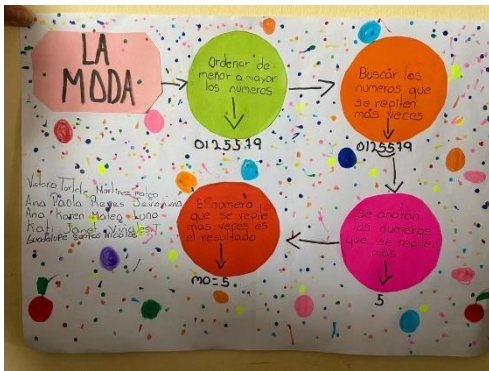 LA
MODA
Ordenar de
menor a mayor
los numeros
0125579
Buscar los
numeros que
se repiten
más veces
0125579
Se anotan
los numeros
que se repiten
más
5
El numero
que se repite
más veces es
el resultado
mo=5
Martinez mateo
Ana Paola Reyes
Ana Karen Mateo Luna
Kati Janet
Guadalupe santos nicolas